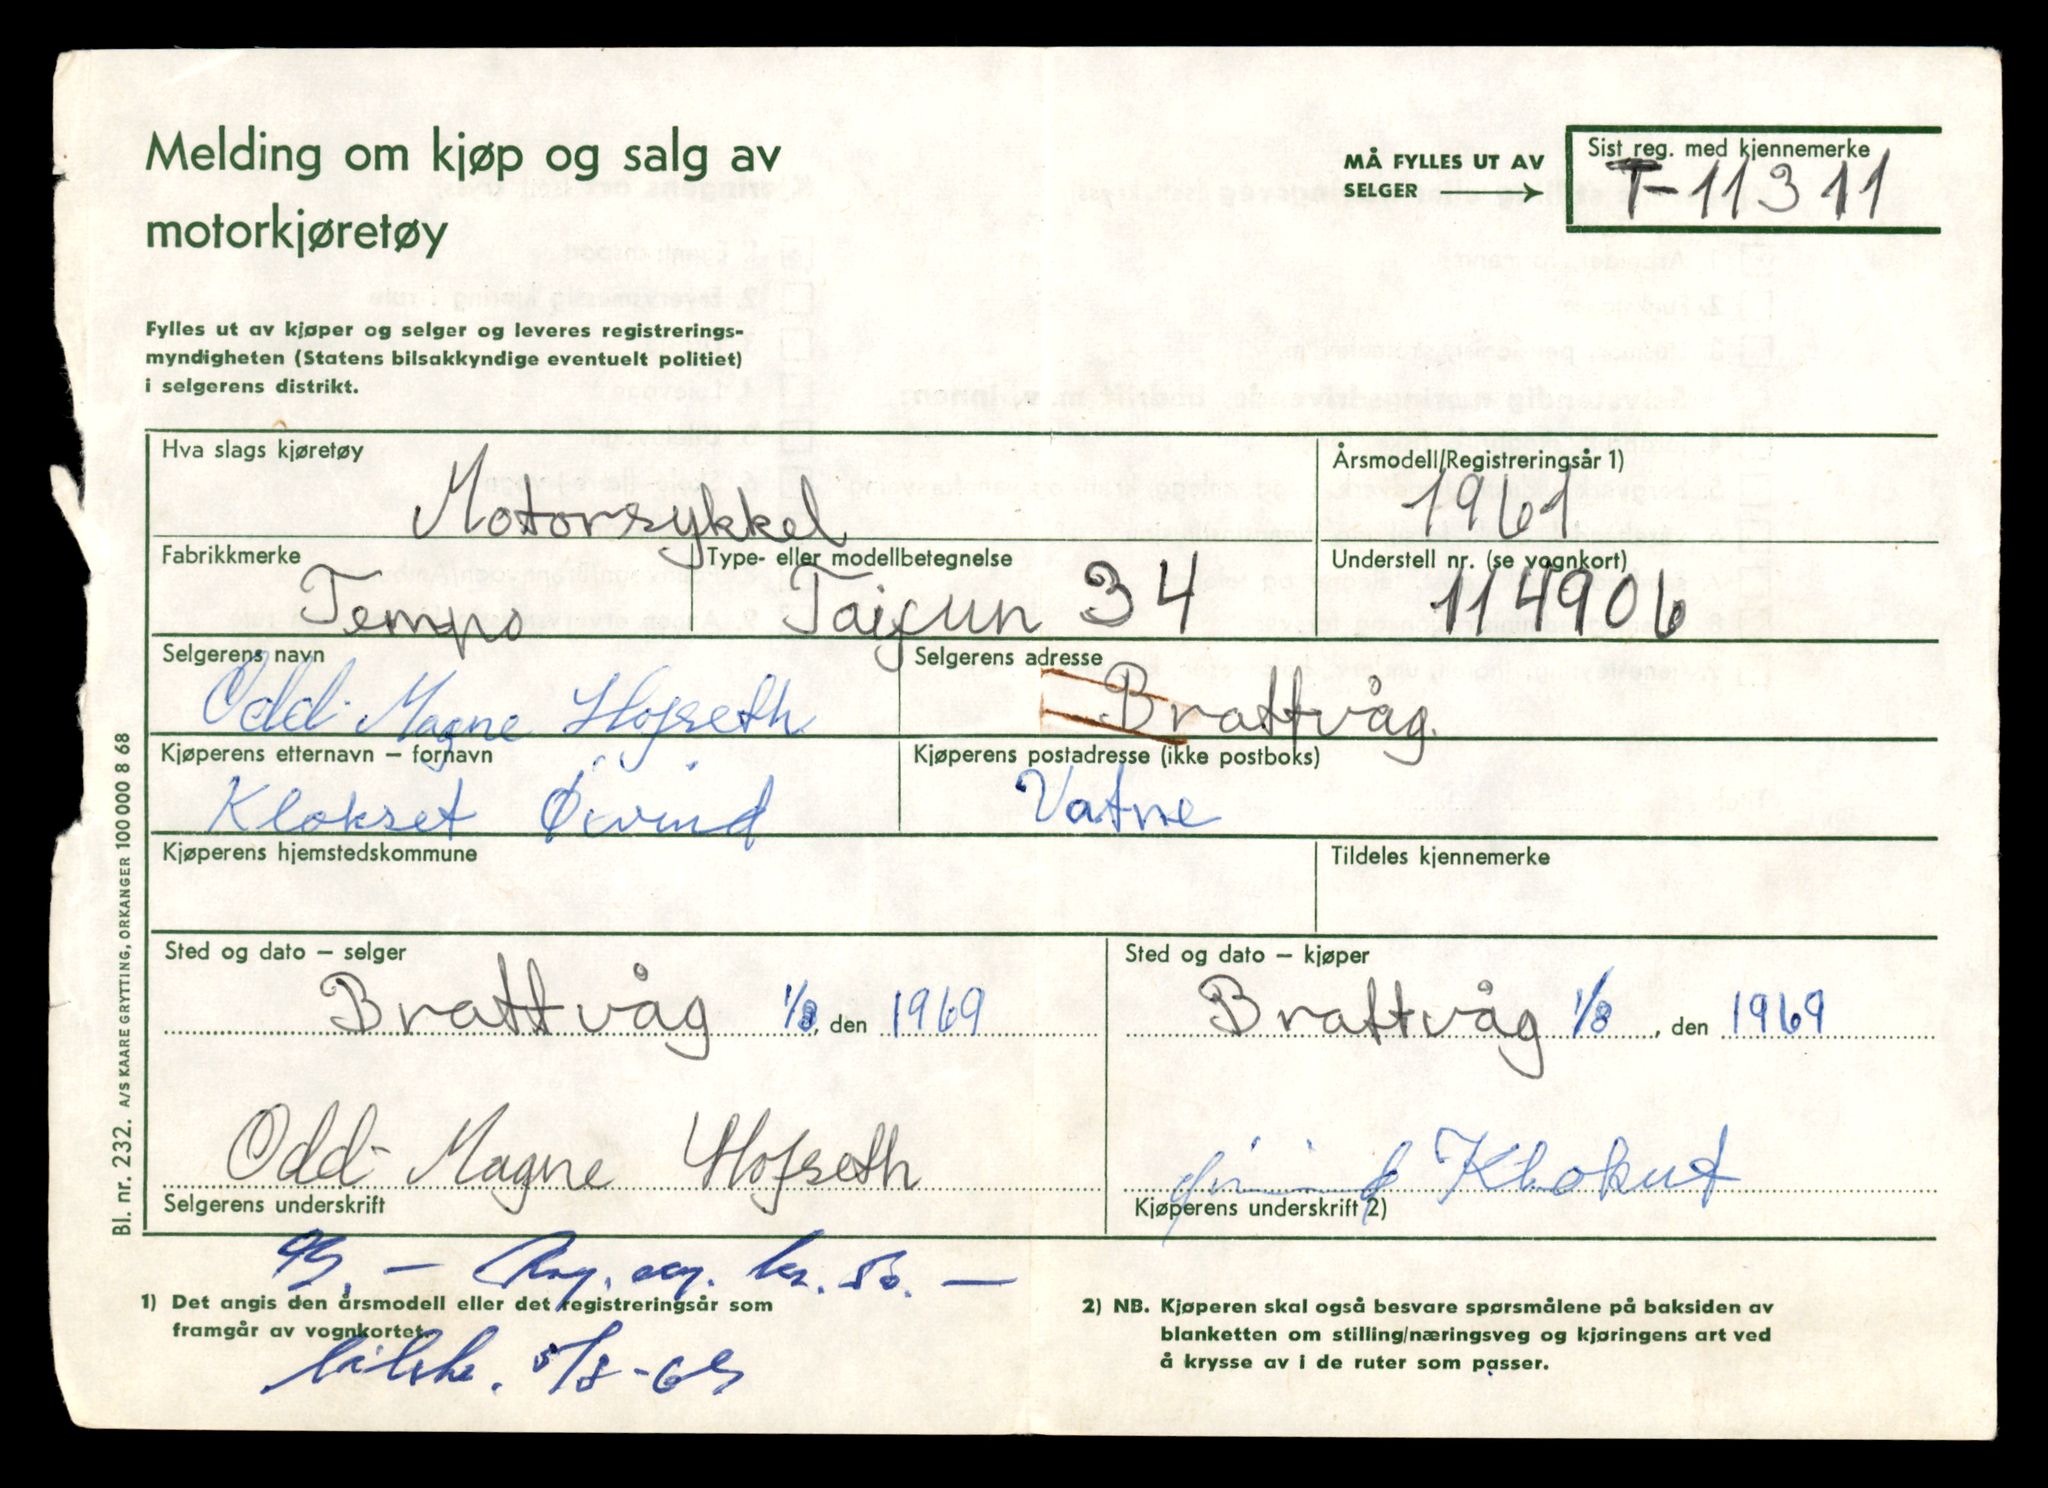 Melding om kjøp og salg av
motorkjøretøy
MÅ FYLLES UT AV
SELGER
Sist reg. med kjennemerke
T-11311
Fylles ut av kjøper og selger og leveres registrerings-
myndigheten (Statens bilsakkyndige eventuelt politiet)
i selgerens distrikt.
Hva slags kjøretøy
Motorsykkel
Årsmodell/Registreringsår 1)
1961
Fabrikkmerke
Tempo
Type- eller modellbetegnelse
Taifun 34
Understell nr. (se vognkort)
114906
Selgerens navn
Odd-Magne Hofseth
Selgerens adresse
Brattvåg.
Kjøperens etternavn – fornavn
Klokset Øivind
Kjøperens postadresse (ikke postboks)
Vatne
Kjøperens hjemstedskommune
Tildeles kjennemerke
Sted og dato – selger
Brattvåg 1/8, den 1969
Sted og dato – kjøper
Brattvåg 1/8, den 1969
Odd-Magne Hofseth
Selgerens underskrift
Øivind Klokset
Kjøperens underskrift 2)
kr. 50.–
1) Det angis den årsmodell eller det registreringsår som
framgår av vognkortet.
5/8-69
2) NB. Kjøperen skal også besvare spørsmålene på baksiden av
blanketten om stilling/næringsveg og kjøringens art ved
å krysse av i de ruter som passer.
Bl. nr. 232. A/S KAARE GRYTTING, ORKANGER 100 000 8 68